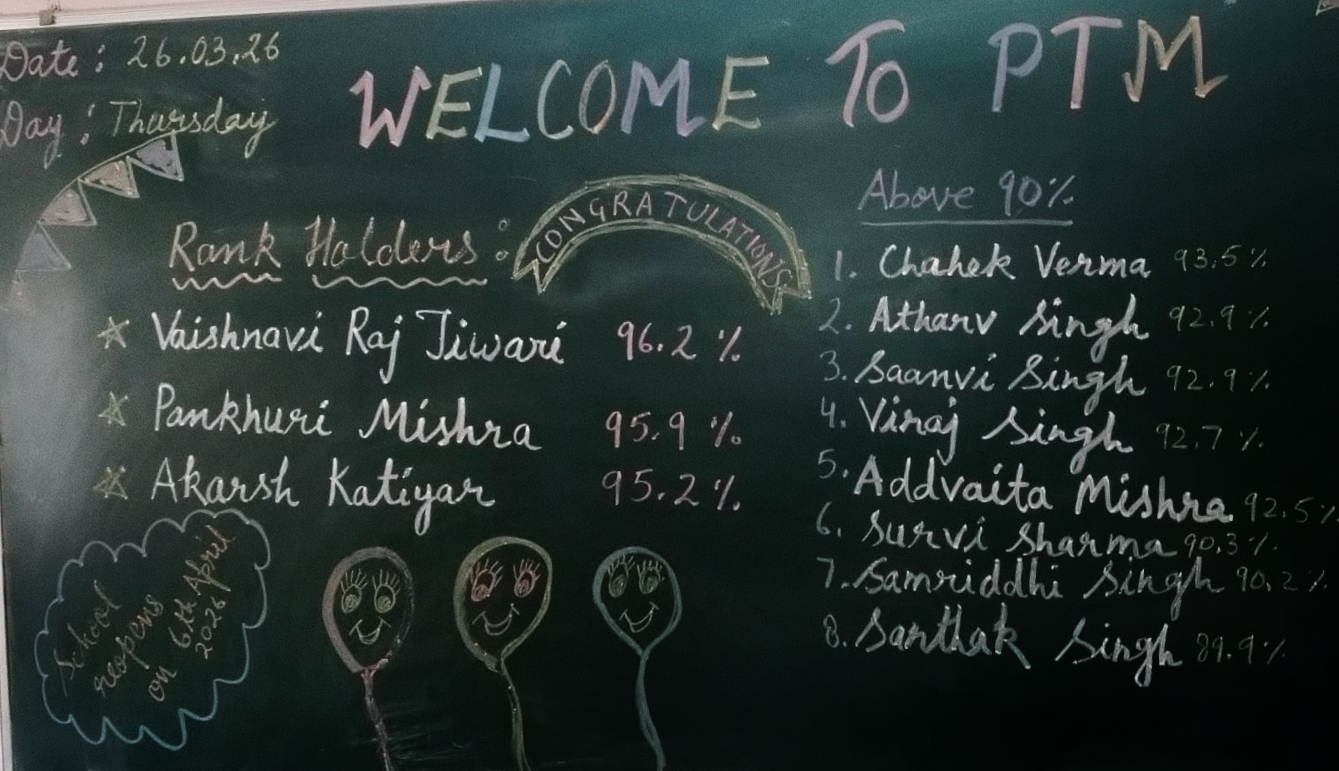 Date : 26.03.26
Day : Thursday
WELCOME To PTM
Rank Holders :
CONGRATULATIONS
☆ Vaishnavi Raj Tiwari 96.2 %
☆ Pankhuri Mishra 95.9 %
☆ Akarsh Katiyar 95.2 %
Above 90%
1. Chahek Verma 93.5 %
2. Atharv Singh 92.9 %
3. Saanvi Singh 92.9 %
4. Viraj Singh 92.7 %
5. Addvaita Mishra 92.5 %
6. Survi Sharma 90.3 %
7. Samriddhi Singh 90.2 %
8. Sarthak Singh 89.9 %
School
reopens
on 6th April
2026